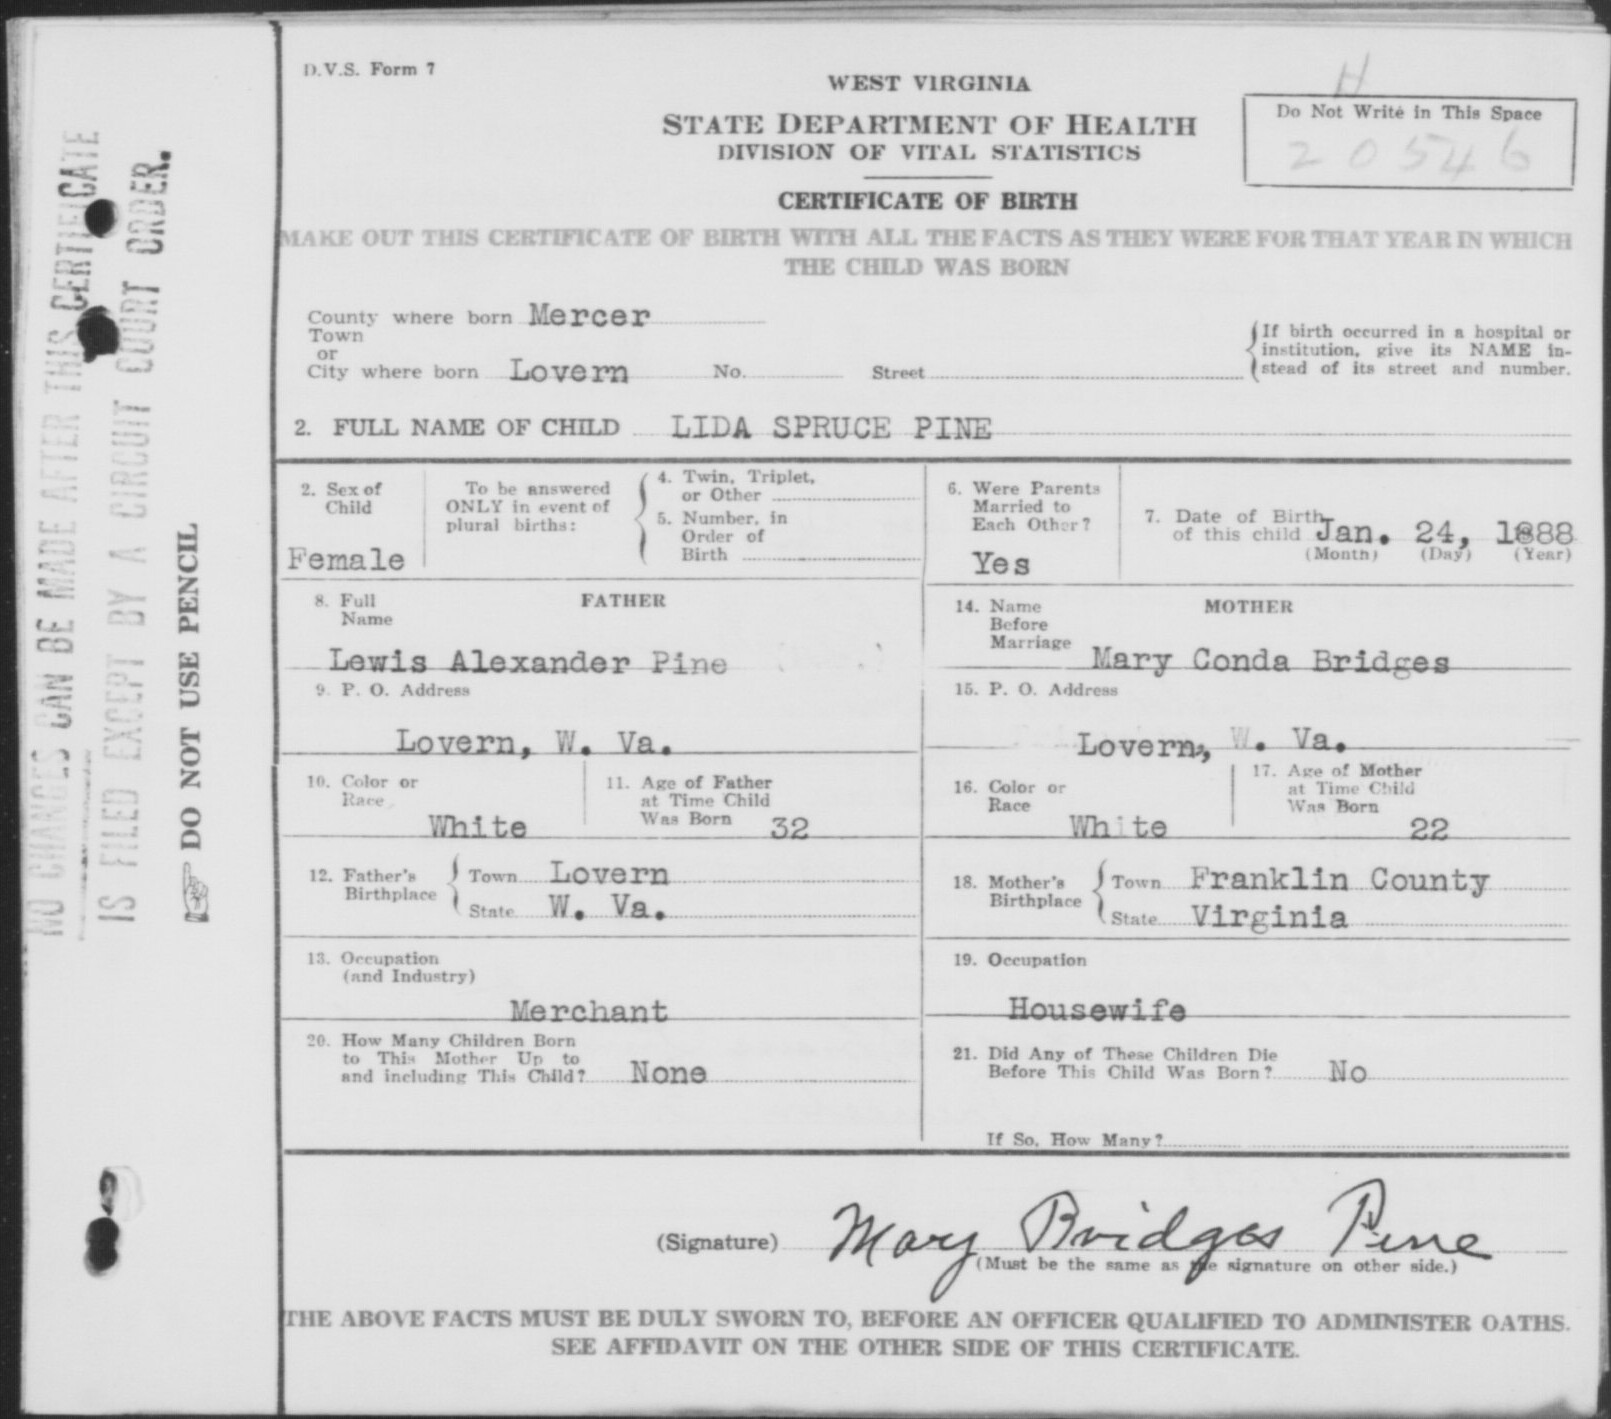 D.V.S. Form 7
H
WEST VIRGINIA
STATE DEPARTMENT OF HEALTH
DIVISION OF VITAL STATISTICS
Do Not Write in This Space
20546
CERTIFICATE OF BIRTH
MAKE OUT THIS CERTIFICATE OF BIRTH WITH ALL THE FACTS AS THEY WERE FOR THAT YEAR IN WHICH
THE CHILD WAS BORN
County where born Mercer
Town
or
City where born Lovern No. Street
If birth occurred in a hospital or
institution, give its NAME in-
stead of its street and number.
2. FULL NAME OF CHILD LIDA SPRUCE PINE
2. Sex of
Child
Female
To be answered
ONLY in event of
plural births:
4. Twin, Triplet,
or Other
5. Number, in
Order of
Birth
6. Were Parents
Married to
Each Other?
Yes
7. Date of Birth
of this child Jan. 24, 1888
(Month) (Day) (Year)
8. Full
Name
FATHER
Lewis Alexander Pine
14. Name
Before
Marriage
MOTHER
Mary Conda Bridges
9. P. O. Address
Lovern, W. Va.
15. P. O. Address
Lovern, W. Va.
10. Color or
Race
White
11. Age of Father
at Time Child
Was Born 32
16. Color or
Race
White
17. Age of Mother
at Time Child
Was Born
22
12. Father's
Birthplace
Town Lovern
State W. Va.
18. Mother's
Birthplace
Town Franklin County
State Virginia
13. Occupation
(and Industry)
Merchant
19. Occupation
Housewife
20. How Many Children Born
to This Mother Up to
and including This Child? None
21. Did Any of These Children Die
Before This Child Was Born? No
If So, How Many?
(Signature) Mary Bridges Pine
(Must be the same as the signature on other side.)
THE ABOVE FACTS MUST BE DULY SWORN TO, BEFORE AN OFFICER QUALIFIED TO ADMINISTER OATHS.
SEE AFFIDAVIT ON THE OTHER SIDE OF THIS CERTIFICATE.
NO CHANGES CAN BE MADE AFTER THIS CERTIFICATE
IS FILED EXCEPT BY A CIRCUIT COURT ORDER.
DO NOT USE PENCIL